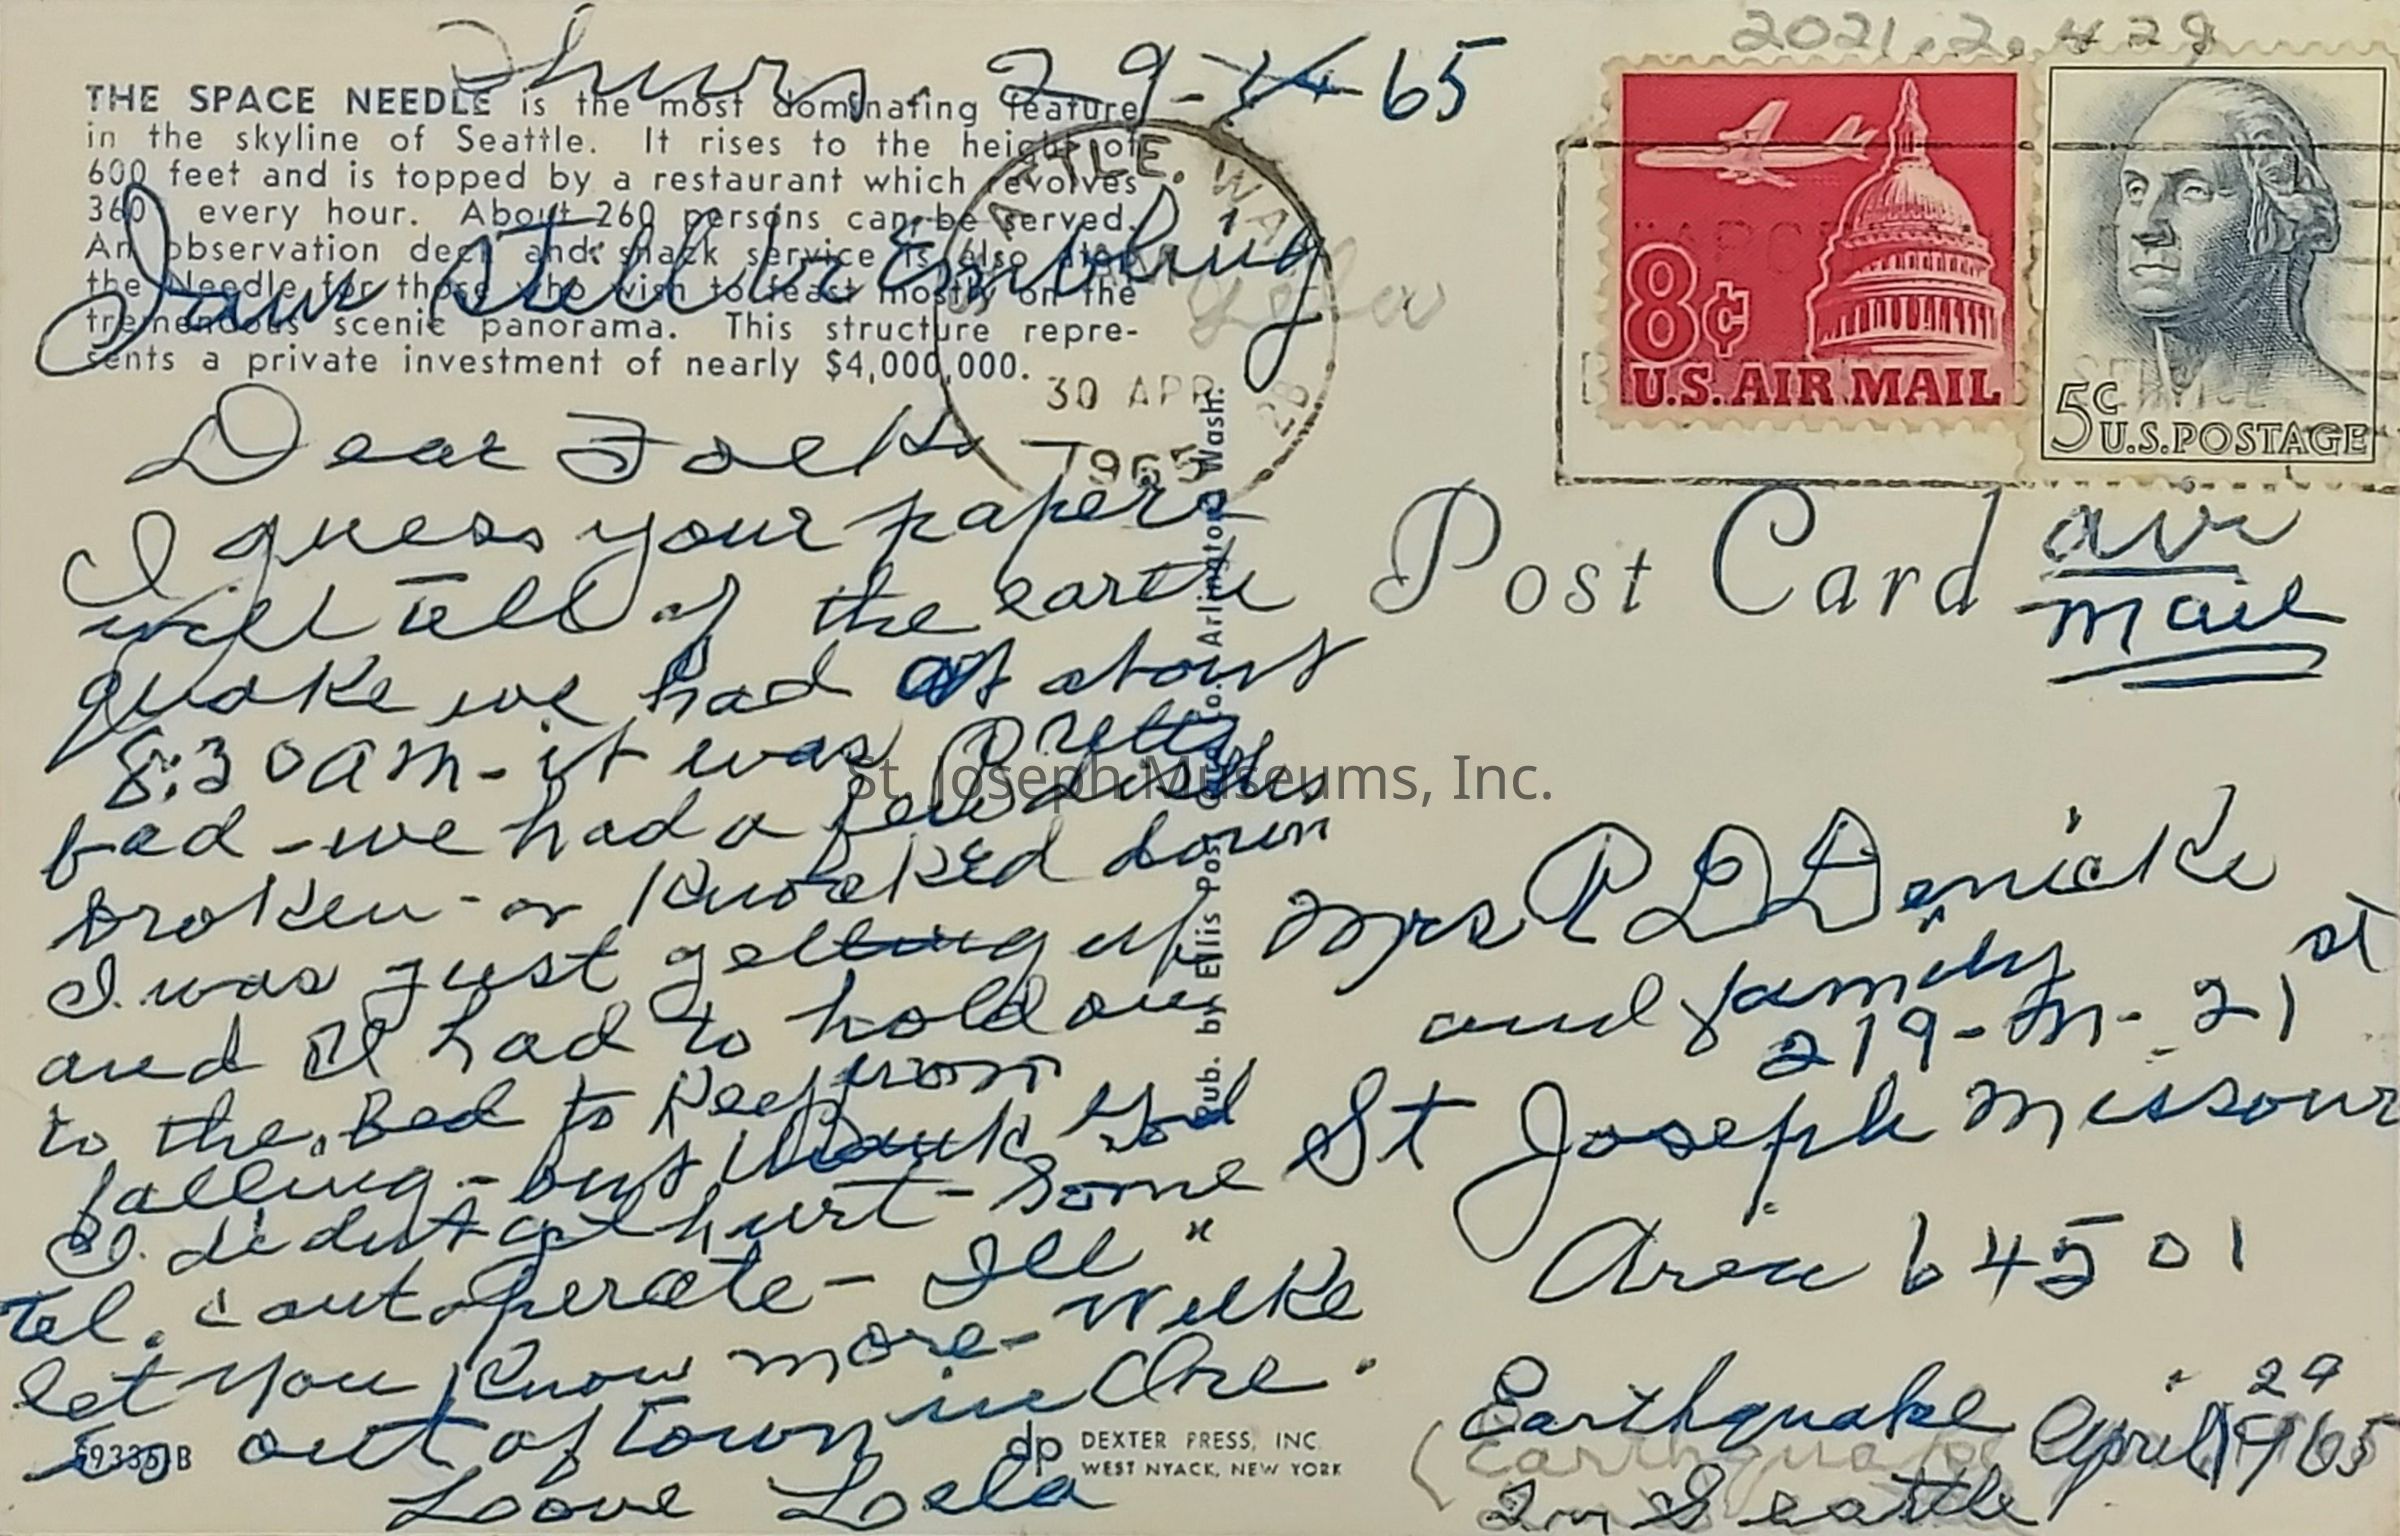 2021.2.429
Thurs 29-4-65
THE SPACE NEEDLE is the most dominating feature
in the skyline of Seattle. It rises to the height of
600 feet and is topped by a restaurant which revolves
360 every hour. About 260 persons can be served.
An observation deck and snack service is also
the Needle for those who wish to feast mostly on the
tremendous scenic panorama. This structure repre-
sents a private investment of nearly $4,000,000.
I am still trembling
Lela
SEATTLE, WA
30 APR
1965
2B
8¢
U.S. AIR MAIL
5¢
U.S. POSTAGE
Post Card
air
mail
Dear Folks
I guess your papers
will tell of the earth
quake we had at about
8:30 AM - it was Pretty
bad - we had a few dishes
broken - or Knocked down
I was just getting up
and I had to hold on
to the Bed to Keep from
falling - but thank God
I didnt get hurt - Some
Tel. cant operate - Ill
let you Know more - Wilke
is out of town in Ore.
Loove Loela
Pub. by Ellis Post Card Co. Arlington, Wash.
Mrs P D Denicke
and family
219-N-21 st
St Joseph Missouri
Area 64501
Earthquake April 29 1965
In Seattle
(Earthquake
dp DEXTER PRESS, INC.
WEST NYACK, NEW YORK
St. Joseph Museums, Inc.